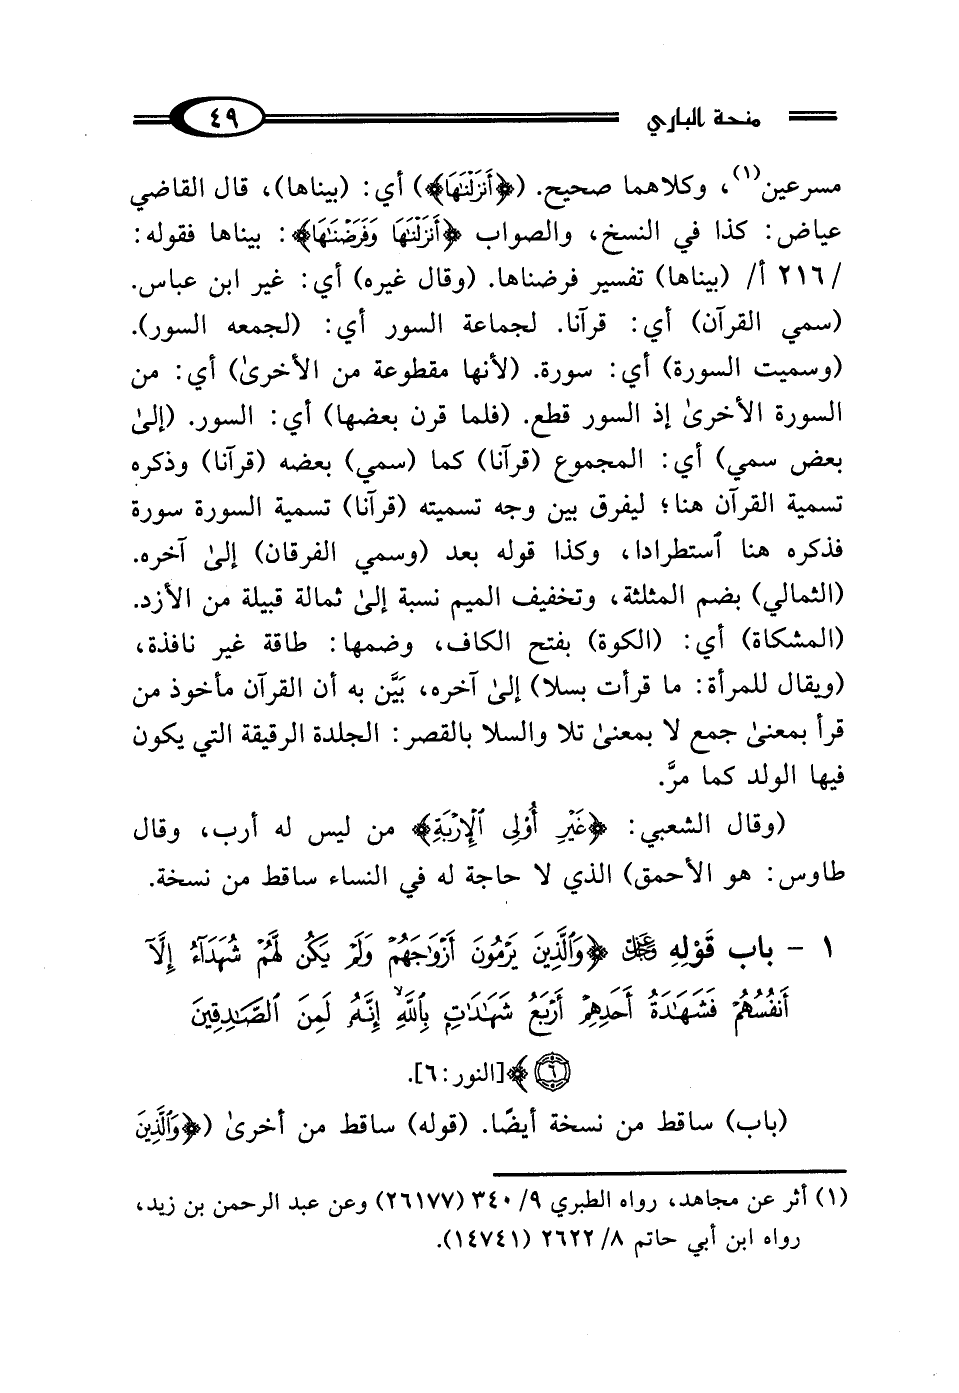 منحة الباري ٤٩
مسرعين(١)، وكلاهما صحيح. (﴿أَنزَلْنَٰهَا﴾) أي: (بيناها)، قال القاضي
عياض: كذا في النسخ، والصواب ﴿أَنزَلْنَٰهَا وَفَرَضْنَٰهَا﴾: بيناها فقوله:
/٢١٦ أ/ (بيناها) تفسير فرضناها. (وقال غيره) أي: غير ابن عباس.
(سمي القرآن) أي: قرآنا. لجماعة السور أي: (لجمعه السور).
(وسميت السورة) أي: سورة. (لأنها مقطوعة من الأخرىٰ) أي: من
السورة الأخرىٰ إذ السور قطع. (فلما قرن بعضها) أي: السور. (إلىٰ
بعض سمي) أي: المجموع (قرآنا) كما (سمي) بعضه (قرآنا) وذكره
تسمية القرآن هنا؛ ليفرق بين وجه تسميته (قرآنا) تسمية السورة سورة
فذكره هنا ٱستطرادا، وكذا قوله بعد (وسمي الفرقان) إلىٰ آخره.
(الثمالي) بضم المثلثة، وتخفيف الميم نسبة إلىٰ ثمالة قبيلة من الأزد.
(المشكاة) أي: (الكوة) بفتح الكاف، وضمها: طاقة غير نافذة،
(ويقال للمرأة: ما قرأت بسلا) إلىٰ آخره، بَيَّن به أن القرآن مأخوذ من
قرأ بمعنىٰ جمع لا بمعنىٰ تلا والسلا بالقصر: الجلدة الرقيقة التي يكون
فيها الولد كما مرَّ.
(وقال الشعبي: ﴿غَيْرِ أُوْلِى ٱلْإِرْبَةِ﴾ من ليس له أرب، وقال
طاوس: هو الأحمق) الذي لا حاجة له في النساء ساقط من نسخة.
١ - باب قَوْلِهِ ﷿ ﴿وَٱلَّذِينَ يَرْمُونَ أَزْوَٰجَهُمْ وَلَمْ يَكُن لَّهُمْ شُهَدَآءُ إِلَّآ
أَنفُسُهُمْ فَشَهَٰدَةُ أَحَدِهِمْ أَرْبَعُ شَهَٰدَٰتٍۭ بِٱللَّهِ ۙ إِنَّهُۥ لَمِنَ ٱلصَّٰدِقِينَ
٦ ﴾[النور: ٦].
(باب) ساقط من نسخة أيضًا. (قوله) ساقط من أخرىٰ (﴿وَٱلَّذِينَ
(١) أثر عن مجاهد، رواه الطبري ٩/ ٣٤٠ (٢٦١٧٧) وعن عبد الرحمن بن زيد،
رواه ابن أبي حاتم ٨/ ٢٦٢٢ (١٤٧٤١).